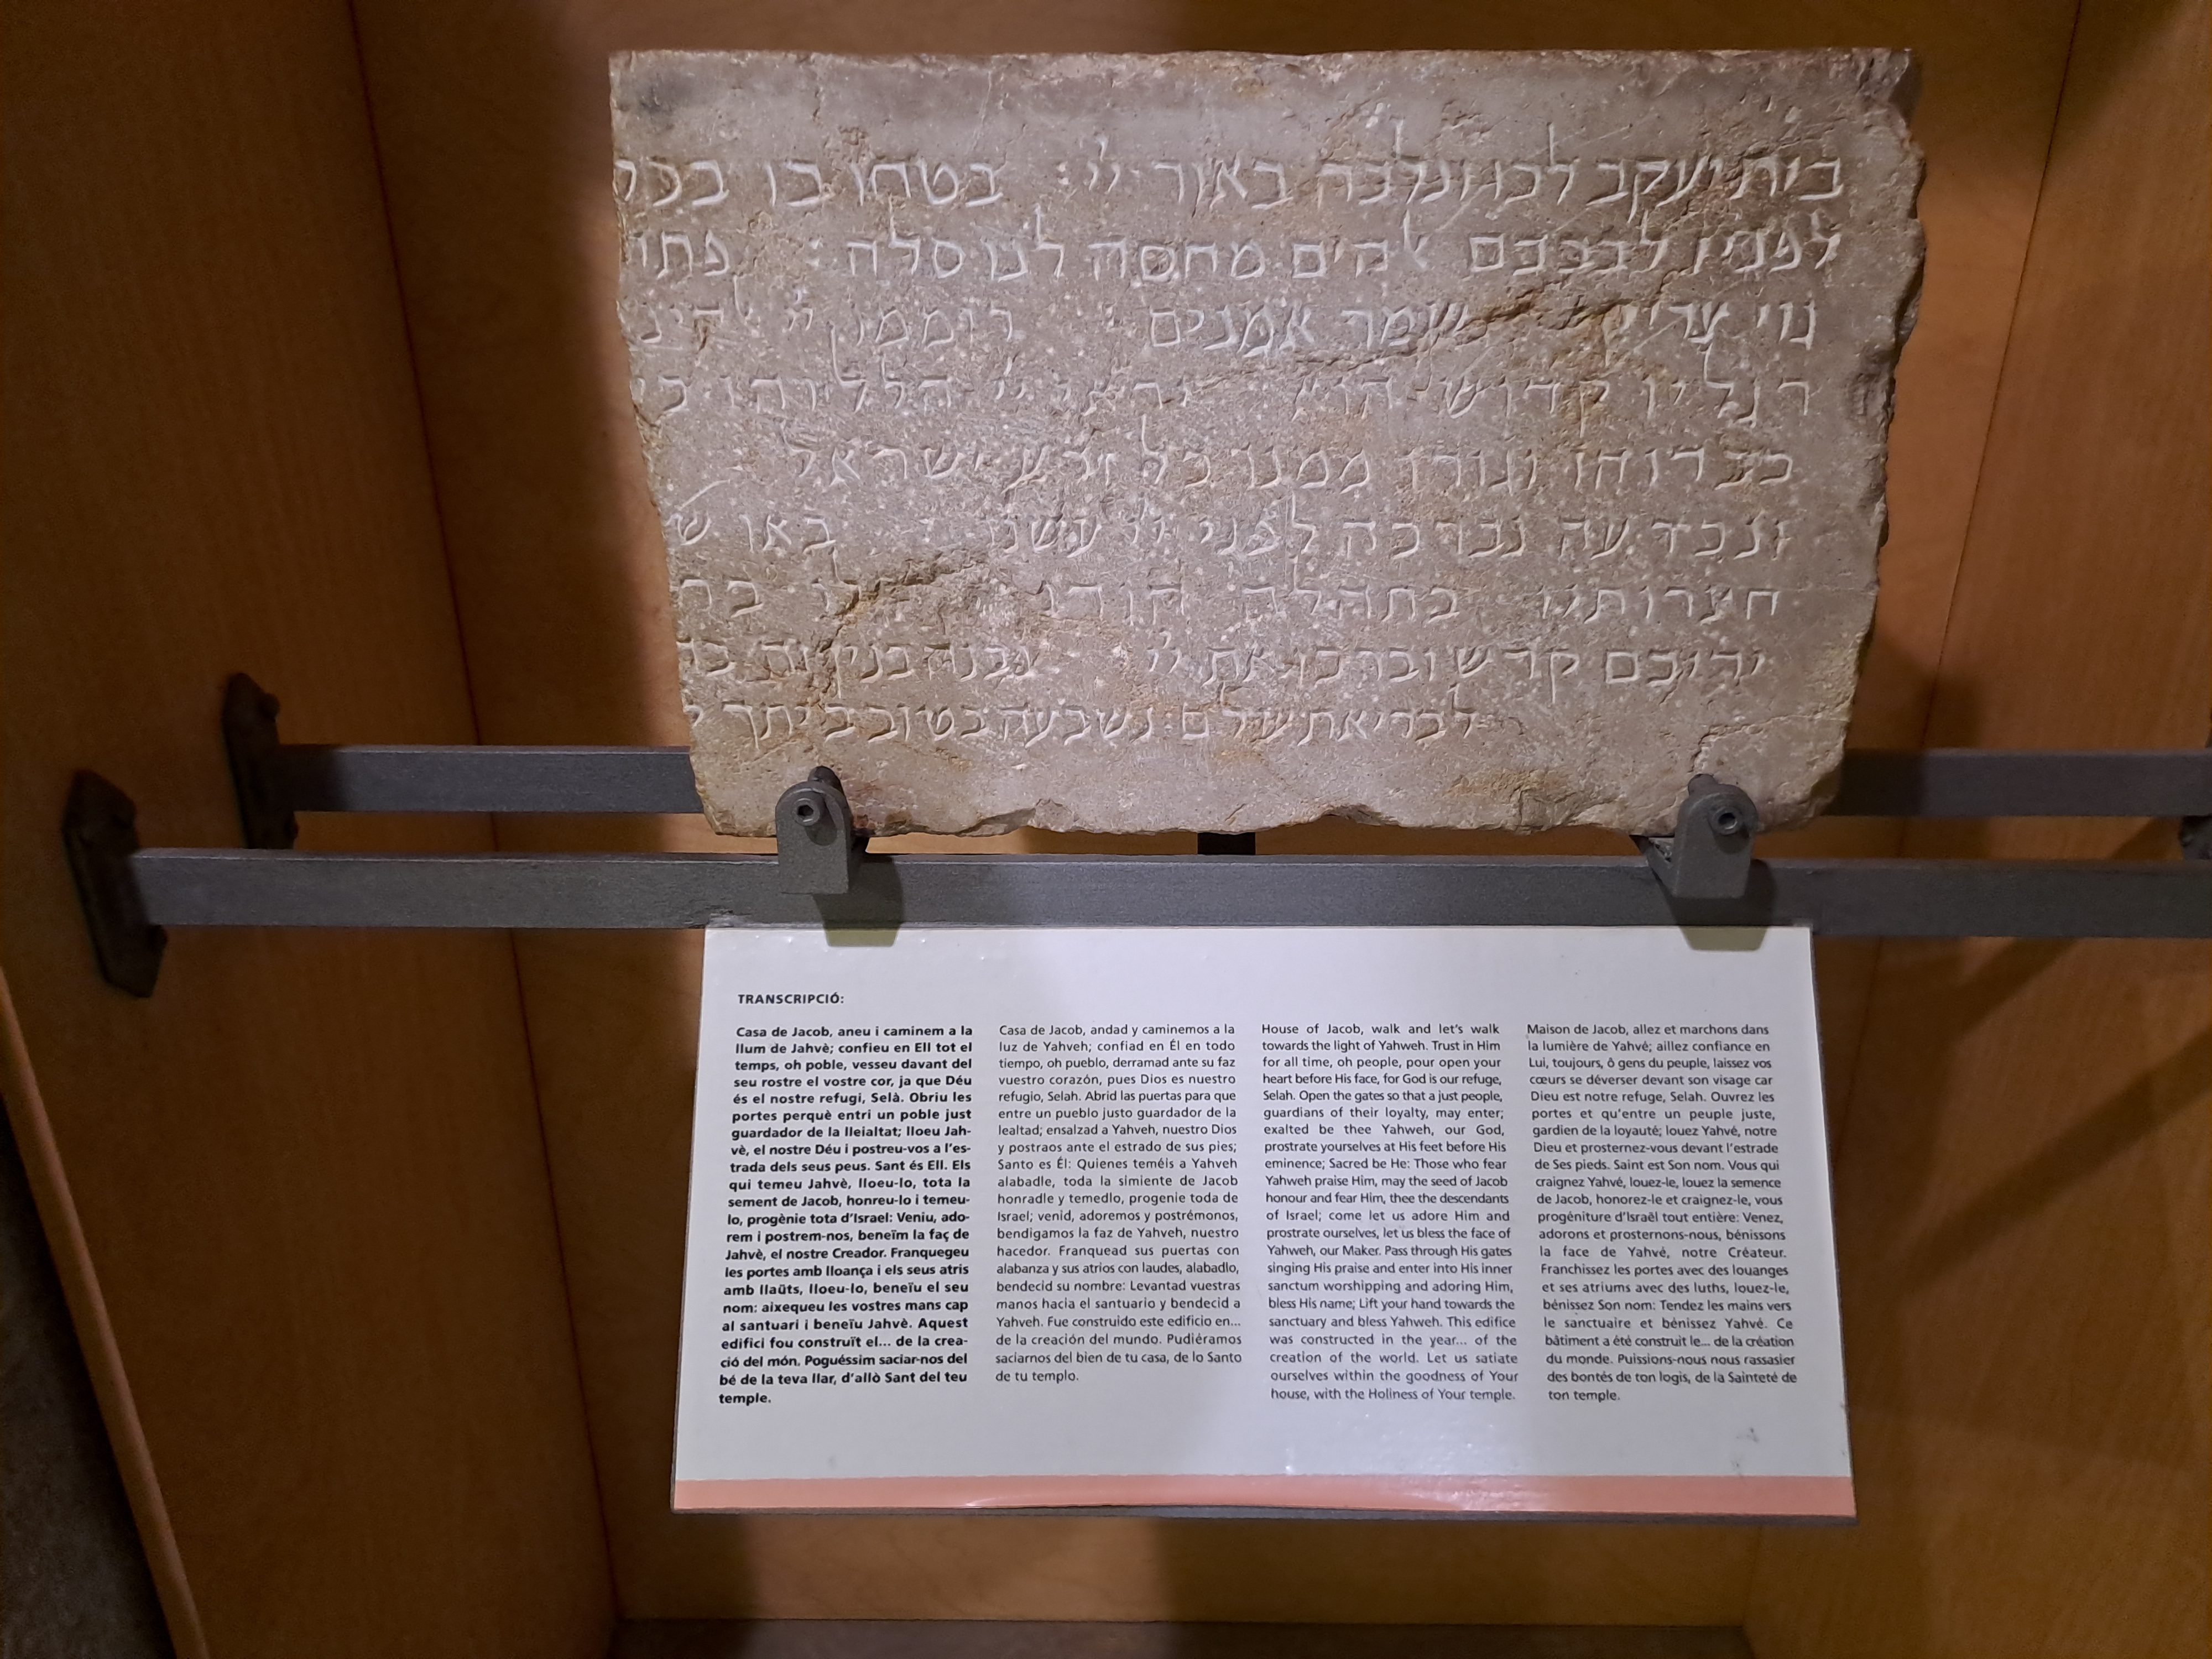 בית יעקב לכו ונלכה באור יי : בטחו בו בכל
לפניו לבבכם אלהים מחסה לנו סלה : פתחו
גוי צדיק שומר אמנים רוממו יי אלהינ
רגליו קדוש הוא יראי יי הללוהו כל
כבדוהו וגורו ממנו כל זרע ישראל
ונכרעה נברכה לפני יי עשנו באו ש
חצרותיו בתהלה הודו לו
ידיכם קדש וברכו את יי נבנה בנין זה
לבריאת עולם : נשבעה בטוב ביתך
TRANSCRIPCIÓ:
Casa de Jacob, aneu i caminem a la
llum de Jahvè; confieu en Ell tot el
temps, oh poble, vesseu davant del
seu rostre el vostre cor, ja que Déu
és el nostre refugi, Selà. Obriu les
portes perquè entri un poble just
guardador de la lleialtat; lloeu Jah-
vè, el nostre Déu i postreu-vos a l'es-
trada dels seus peus. Sant és Ell. Els
qui temeu Jahvè, lloeu-lo, tota la
sement de Jacob, honreu-lo i temeu-
lo, progènie tota d'Israel: Veniu, ado-
rem i postrem-nos, beneïm la faç de
Jahvè, el nostre Creador. Franquegeu
les portes amb lloança i els seus atris
amb llaüts, lloeu-lo, beneïu el seu
nom: aixequeu les vostres mans cap
al santuari i beneïu Jahvè. Aquest
edifici fou construït el... de la crea-
ció del món. Poguéssim saciar-nos del
bé de la teva llar, d'allò Sant del teu
temple.
Casa de Jacob, andad y caminemos a la
luz de Yahveh; confiad en Él en todo
tiempo, oh pueblo, derramad ante su faz
vuestro corazón, pues Dios es nuestro
refugio, Selah. Abrid las puertas para que
entre un pueblo justo guardador de la
lealtad; ensalzad a Yahveh, nuestro Dios
y postraos ante el estrado de sus pies;
Santo es Él: Quienes teméis a Yahveh
alabadle, toda la simiente de Jacob
honradle y temedlo, progenie toda de
Israel; venid, adoremos y postrémonos,
bendigamos la faz de Yahveh, nuestro
hacedor. Franquead sus puertas con
alabanza y sus atrios con laudes, alabadlo,
bendecid su nombre: Levantad vuestras
manos hacia el santuario y bendecid a
Yahveh. Fue construido este edificio en...
de la creación del mundo. Pudiéramos
saciarnos del bien de tu casa, de lo Santo
de tu templo.
House of Jacob, walk and let's walk
towards the light of Yahweh. Trust in Him
for all time, oh people, pour open your
heart before His face, for God is our refuge,
Selah. Open the gates so that a just people,
guardians of their loyalty, may enter;
exalted be thee Yahweh, our God,
prostrate yourselves at His feet before His
eminence; Sacred be He: Those who fear
Yahweh praise Him, may the seed of Jacob
honour and fear Him, thee the descendants
of Israel; come let us adore Him and
prostrate ourselves, let us bless the face of
Yahweh, our Maker. Pass through His gates
singing His praise and enter into His inner
sanctum worshipping and adoring Him,
bless His name; Lift your hand towards the
sanctuary and bless Yahweh. This edifice
was constructed in the year... of the
creation of the world. Let us satiate
ourselves within the goodness of Your
house, with the Holiness of Your temple.
Maison de Jacob, allez et marchons dans
la lumière de Yahvé; aillez confiance en
Lui, toujours, ô gens du peuple, laissez vos
cœurs se déverser devant son visage car
Dieu est notre refuge, Selah. Ouvrez les
portes et qu'entre un peuple juste,
gardien de la loyauté; louez Yahvé, notre
Dieu et prosternez-vous devant l'estrade
de Ses pieds. Saint est Son nom. Vous qui
craignez Yahvé, louez-le, louez la semence
de Jacob, honorez-le et craignez-le, vous
progéniture d'Israël tout entière: Venez,
adorons et prosternons-nous, bénissons
la face de Yahvé, notre Créateur.
Franchissez les portes avec des louanges
et ses atriums avec des luths, louez-le,
bénissez Son nom: Tendez les mains vers
le sanctuaire et bénissez Yahvé. Ce
bâtiment a été construit le... de la création
du monde. Puissions-nous nous rassasier
des bontés de ton logis, de la Sainteté de
ton temple.